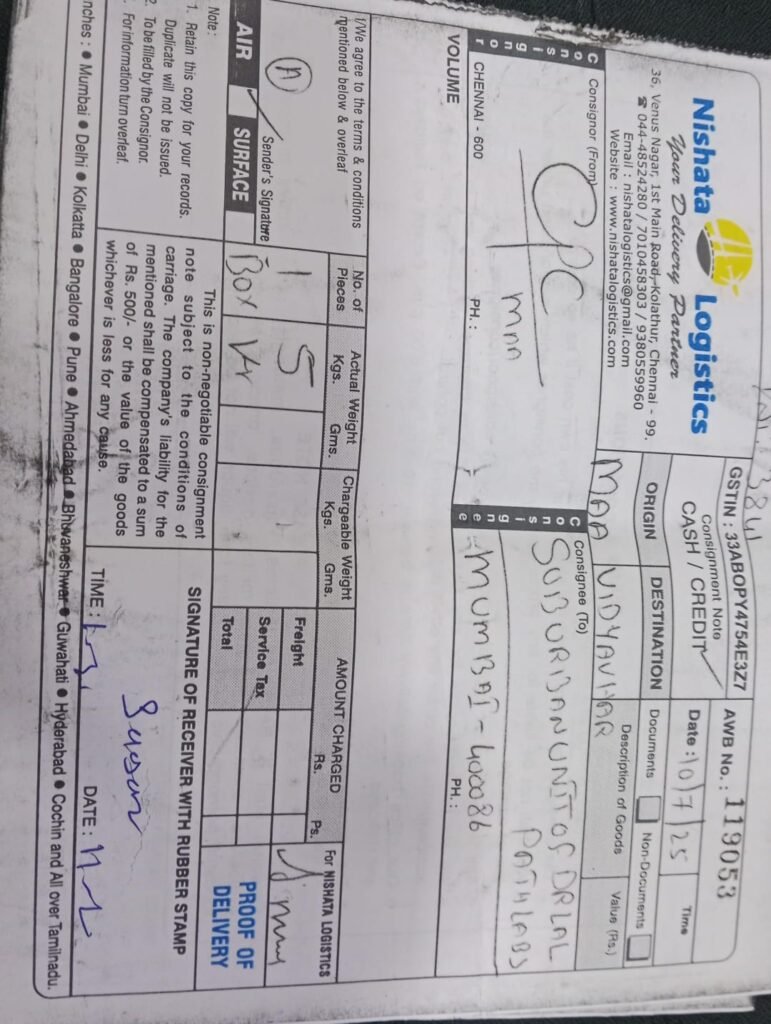 Nishata Logistics
Your Delivery Partner
36, Venus Nagar, 1st Main Road, Kolathur, Chennai - 99.
☎ 044-48524280 / 7010458303 / 9380559960
Email : nishatalogistics@gmail.com
Website : www.nishatalogistics.com
GSTIN : 33ABOPY4754E3Z7
Consignment Note
CASH / CREDIT
AWB No. : 119053
Date : 10/7/25
Time
ORIGIN
DESTINATION
Documents
Non-Documents
MAA VIDYAVIHAR
Description of Goods
Value (Rs.)
Consignor
Consignor (From)
CPC
MAA
CHENNAI - 600
PH. :
Consignee
Consignee (To)
SUBURBAN UNIT OF DR LAL
PATH LABS
MUMBAI - 400086
PH. :
VOLUME
I/We agree to the terms & conditions
mentioned below & overleaf
Sender's Signature
AIR
SURFACE
No. of
Pieces
Actual Weight
Kgs. Gms.
Chargeable Weight
Kgs. Gms.
AMOUNT CHARGED
Rs. Ps.
1
Box
5
Freight
Service Tax
Total
For NISHATA LOGISTICS
PROOF OF
DELIVERY
Note :
1. Retain this copy for your records.
Duplicate will not be issued.
2. To be filled by the Consignor.
For information turn overleaf.
This is non-negotiable consignment
note subject to the conditions of
carriage. The company's liability for the
mentioned shall be compensated to a sum
of Rs. 500/- or the value of the goods
whichever is less for any cause.
SIGNATURE OF RECEIVER WITH RUBBER STAMP
TIME :
DATE :
nches : ● Mumbai ● Delhi ● Kolkatta ● Bangalore ● Pune ● Ahmedabad ● Bhuvaneshwar ● Guwahati ● Hyderabad ● Cochin and All over Tamilnadu.